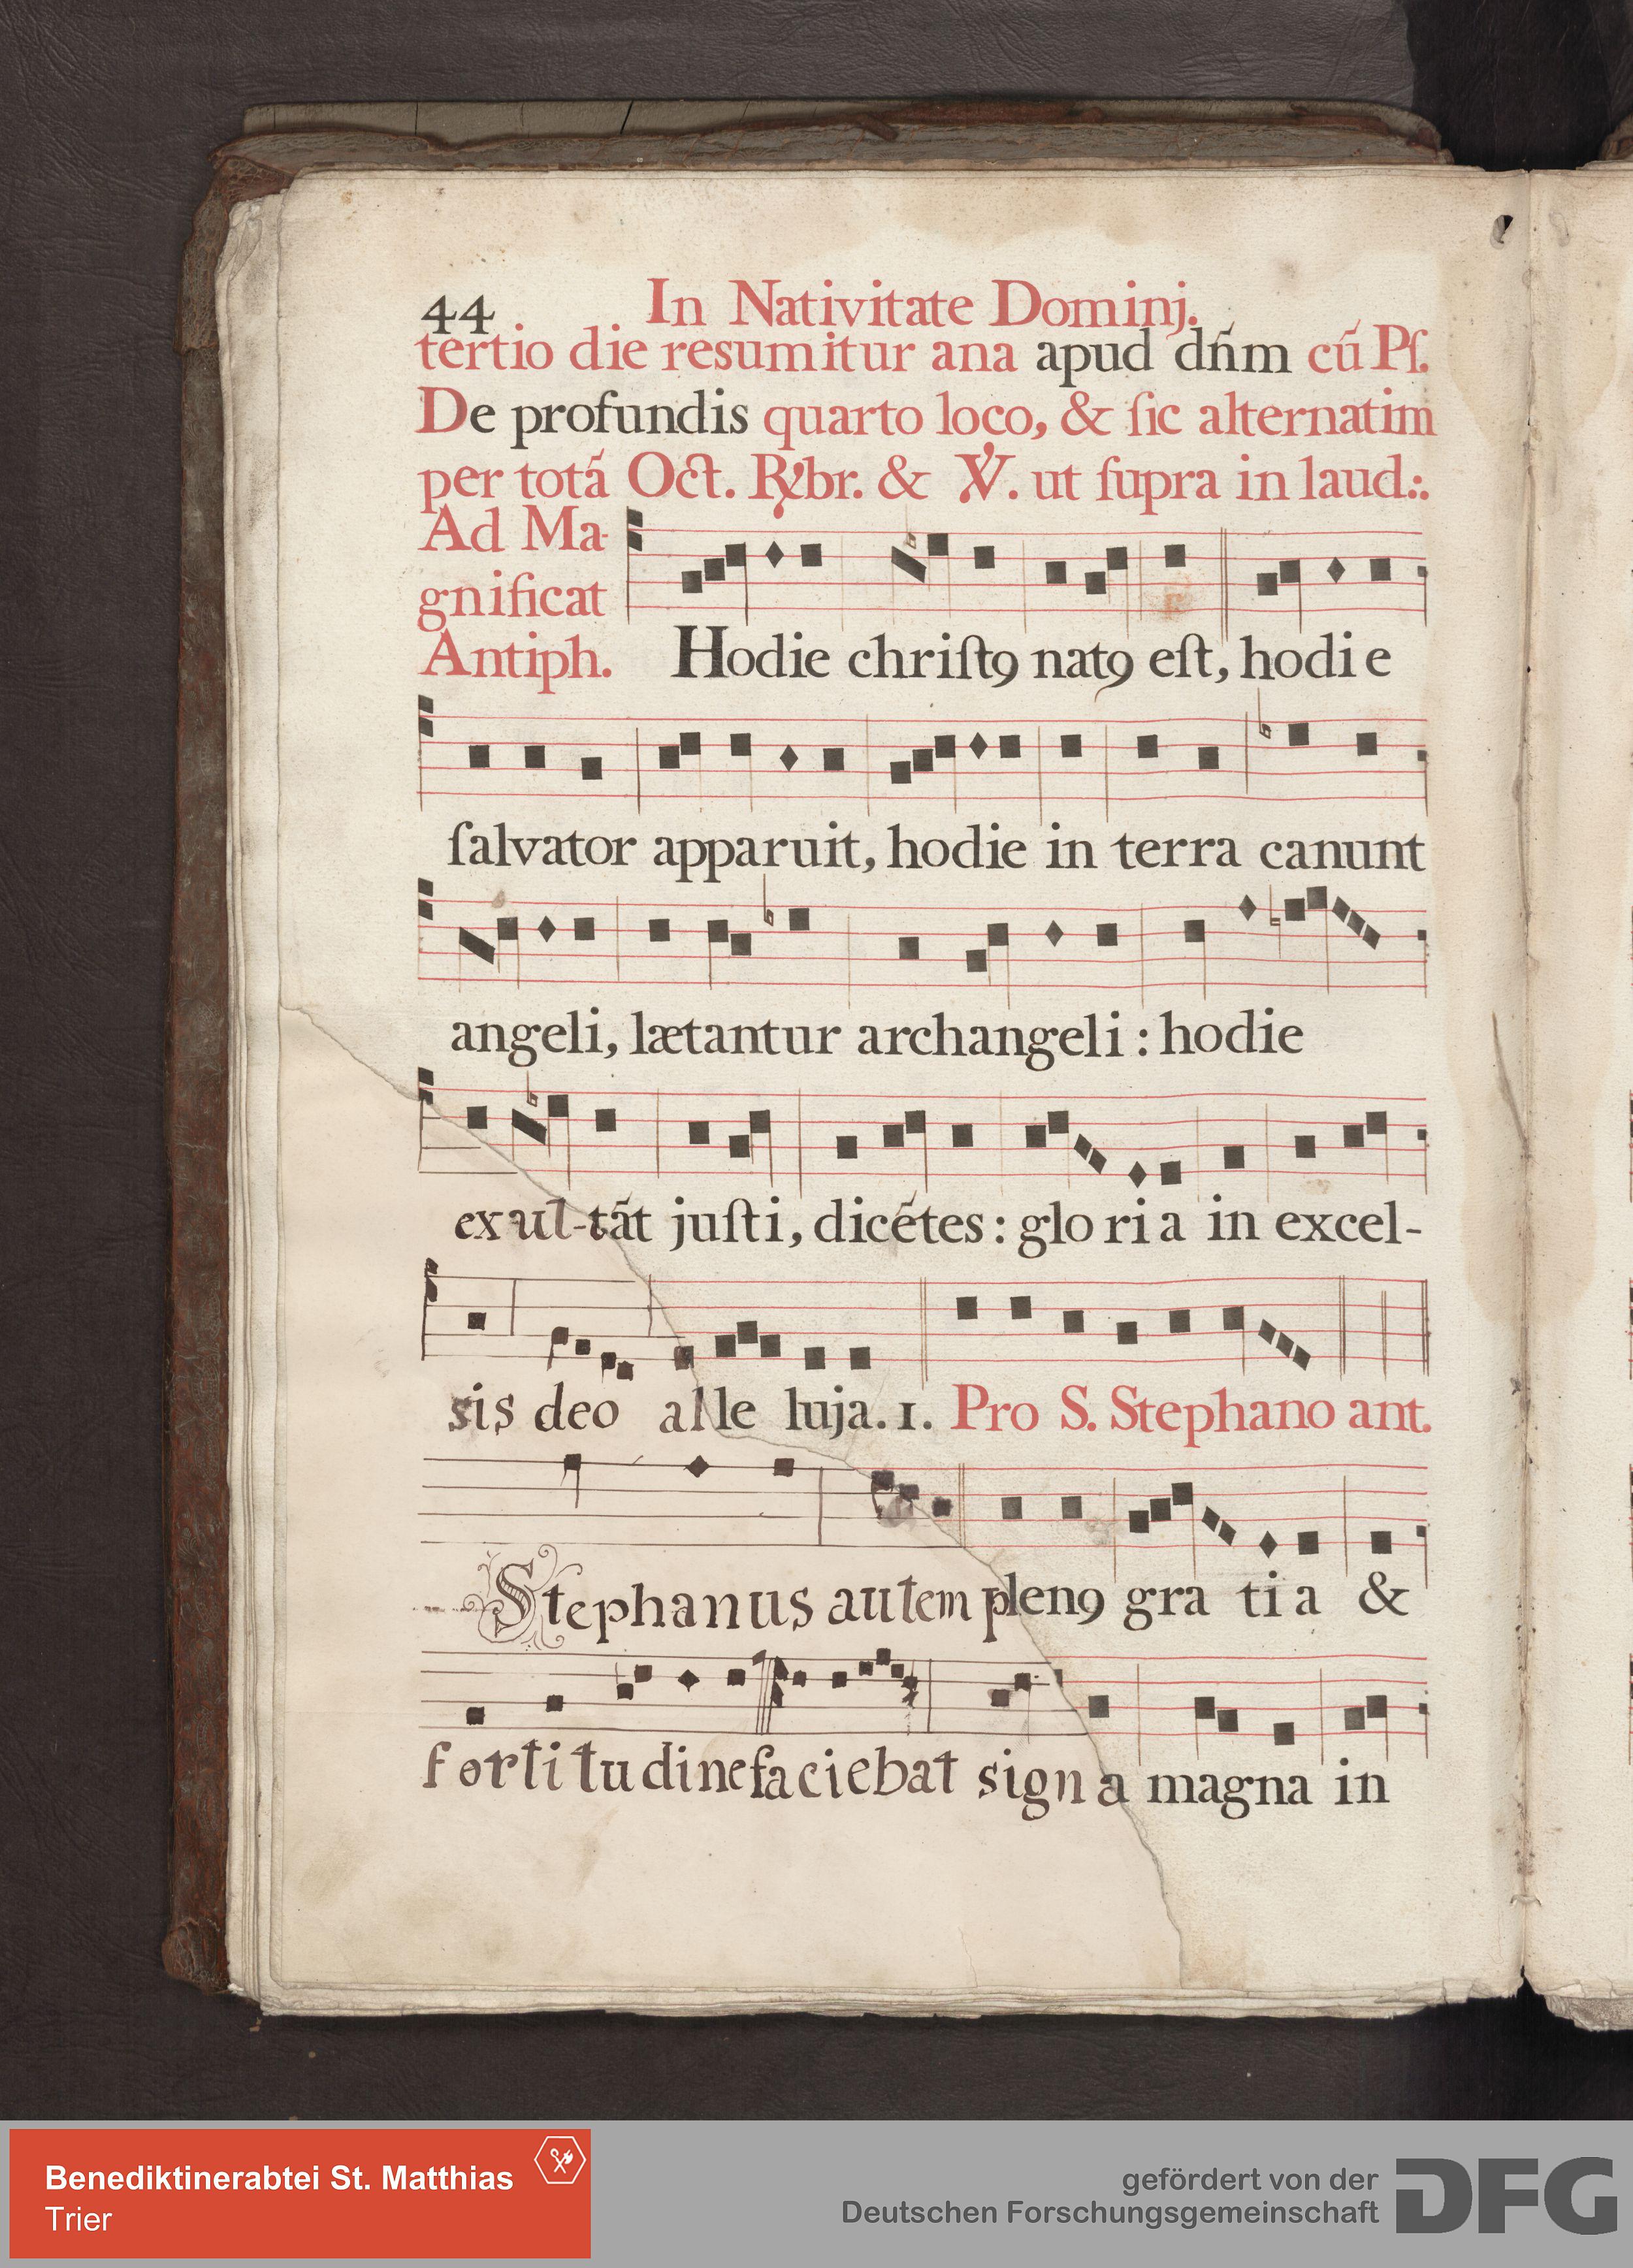 44 In Nativitate Dominj.
tertio die resumitur ana apud dñm cũ Pſ.
De profundis quarto loco, & ſic alternatim
per totã Oct. R℣br. & ℣. ut ſupra in laud:.
Ad Ma-
gnificat
Antiph. Hodie chriſtꝯ natꝯ eſt, hodie
ſalvator apparuit, hodie in terra canunt
angeli, lætantur archangeli : hodie
exul-tãt juſti, dicẽtes : gloria in excel-
sis deo alle luja. 1. Pro S. Stephano ant.
Stephanus autem plenꝯ gra tia &
fortitudine faciebat signa magna in
Benediktinerabtei St. Matthias
Trier
gefördert von der
Deutschen Forschungsgemeinschaft
DFG